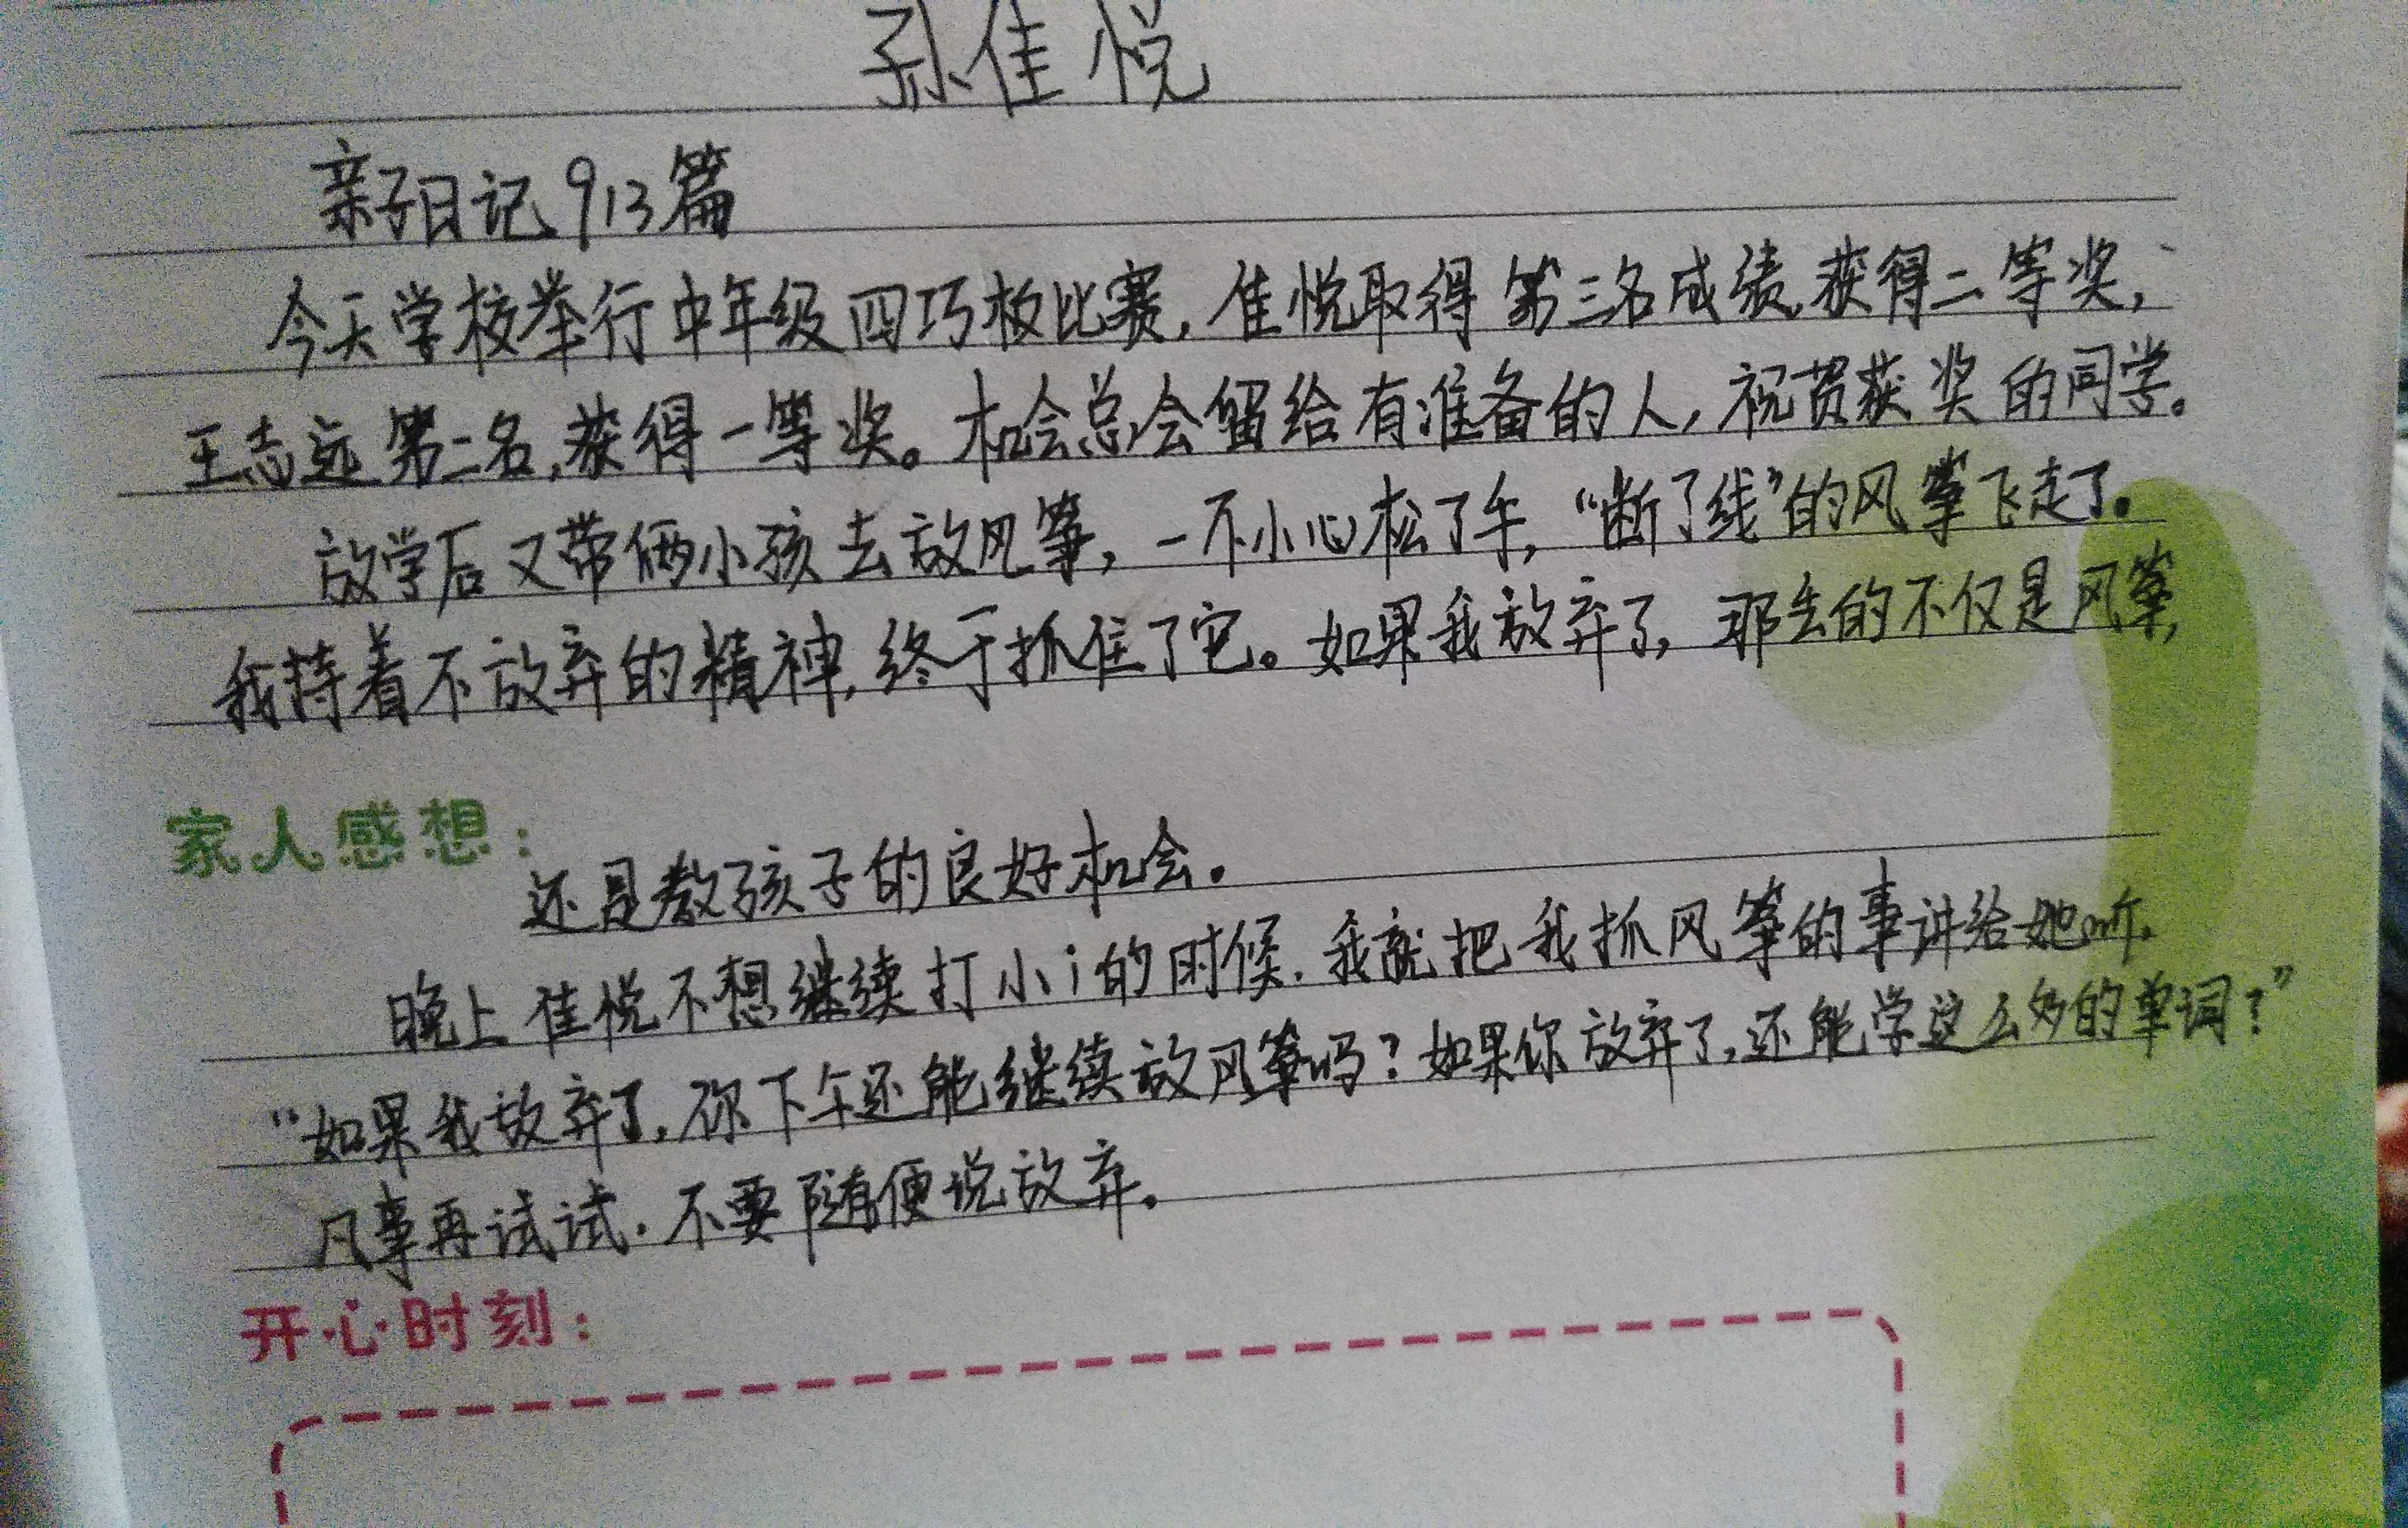 孙佳悦
亲子日记913篇
今天学校举行中年级四巧板比赛,佳悦取得第三名成绩,获得二等奖,
王志远第二名,获得一等奖。机会总会留给有准备的人,祝贺获奖的同学。
放学后又带俩小孩去放风筝,一不小心松了手,“断了线”的风筝飞走了。
我持着不放弃的精神,终于抓住了它。如果我放弃了,那丢的不仅是风筝,
家人感想:
还是教孩子的良好机会。
晚上佳悦不想继续打小i的时候.我就把我抓风筝的事讲给她听.
“如果我放弃了,你下午还能继续放风筝吗?如果你放弃了,还能学这么多的单词?”
凡事再试试.不要随便说放弃。
开心时刻: